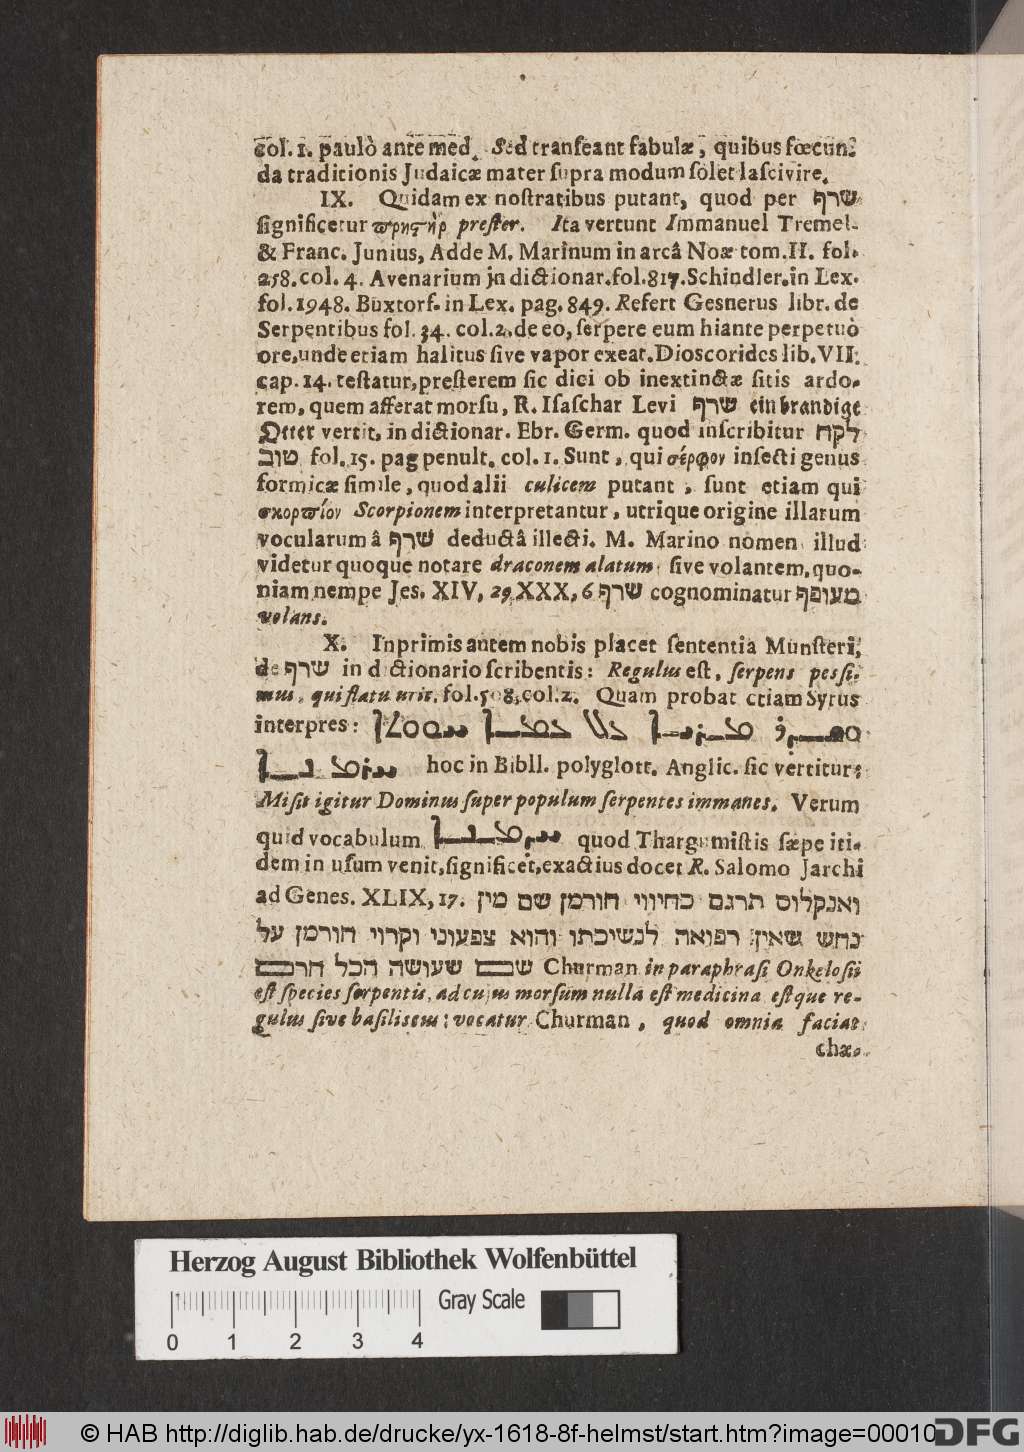 col. 1. paulò ante med. Sed transeant fabulæ, quibus fœcun-
da traditionis Judaicæ mater supra modum solet lascivire.
IX. Quidam ex nostratibus putant, quod per שרף
significetur ϖρηςὴρ prester. Ita vertunt Immanuel Tremel.
& Franc. Junius, Adde M. Marinum in arcâ Noæ tom. II. fol.
258. col. 4. Avenarium in dictionar. fol. 817. Schindler. in Lex.
fol. 1948. Buxtorf. in Lex. pag. 849. Refert Gesnerus libr. de
Serpentibus fol. 34. col. 2. de eo, serpere eum hiante perpetuò
ore, unde etiam halitus sive vapor exeat. Dioscorides lib. VII.
cap. 14. testatur, presterem sic dici ob inextinctæ sitis ardo-
rem, quem afferat morsu, R. Isaschar Levi שרף ein brandige
Otter vertit, in dictionar. Ebr. Germ. quod inscribitur לקח
טוב fol. 15. pag penult. col. 1. Sunt, qui σέρφον insecti genus
formicæ simile, quod alii culicem putant, sunt etiam qui
σκορϖίον Scorpionem interpretantur, utrique origine illarum
vocularum â שרף deductâ illecti. M. Marino nomen illud
videtur quoque notare draconem alatum sive volantem, quo-
niam nempe Jes. XIV, 29. XXX, 6 שרף cognominatur מעופף
volans.
X. Inprimis autem nobis placet sententia Munsteri,
de שרף in dictionario scribentis: Regulus est, serpens pessi-
mus, qui flatu urit. fol. 508. col. 2. Quam probat etiam Syrus
interpres:
hoc in Bibll. polyglott. Anglic. sic vertitur:
Misit igitur Dominus super populum serpentes immanes. Verum
quid vocabulum quod Thargumistis sæpe iti-
dem in usum venit, significet, exactius docet R. Salomo Jarchi
ad Genes. XLIX, 17. ואנקלוס תרגם כחיווי חורמן שם מין
נחש שאין רפואה לנשיכתו והוא צפעוני וקרוי חורמן על
שם שעושה הכל חרם Churman in paraphrasi Onkelosii
est species serpentis, ad cujus morsum nulla est medicina estque re-
gulus sive basiliscus; vocatur Churman, quod omnia faciat
chæ-
Herzog August Bibliothek Wolfenbüttel
Gray Scale
0 1 2 3 4
© HAB http://diglib.hab.de/drucke/yx-1618-8f-helmst/start.htm?image=00010
DFG